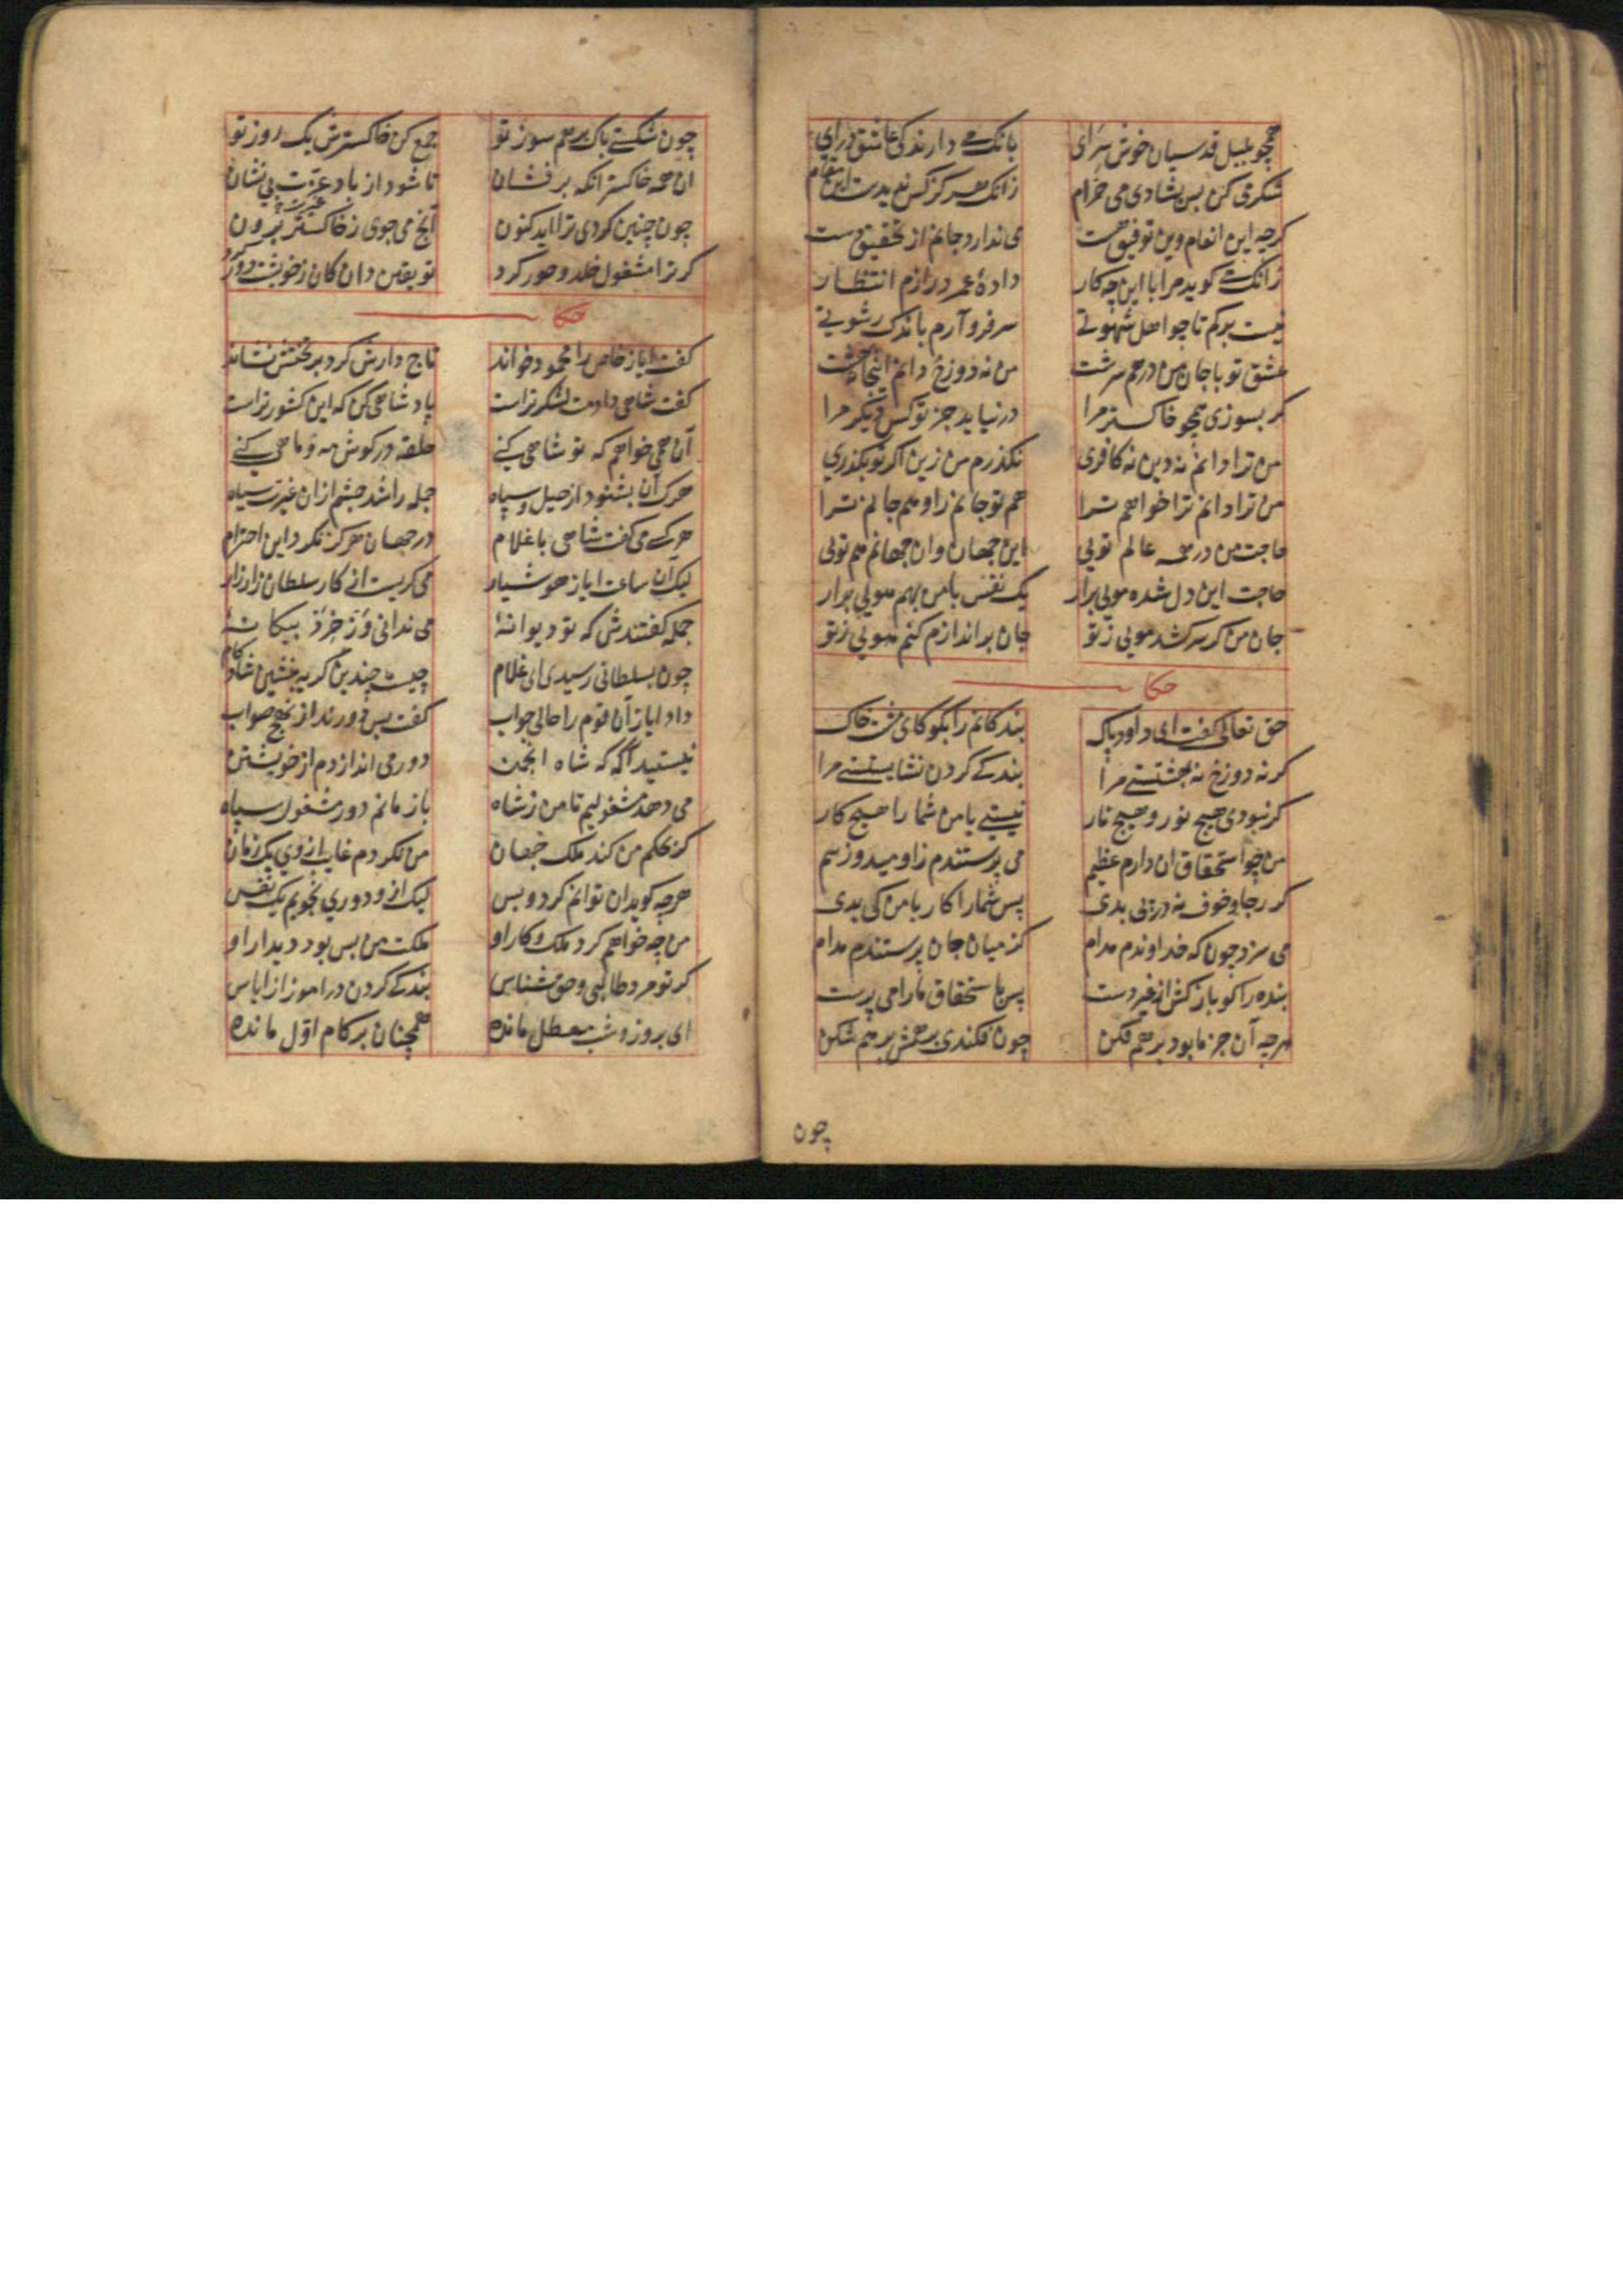 همچو بلبل قدسیان خوش سرای بانک می دارند کی عاشق درای
شکر می کن بس بشادی می خرام زانک هرکز کس ندیدست این مقام
کرچه این انعام وین توفیق هست می ندارد جانم از تحقیق دست
زانک می کوید مرا با این چه کار داده عمر درازم انتظار
نیست برکم تا چو اهل شهوتی سر فرو آرم باندک رشوتی
عشق تو با جان من در هم سرشت من نه دوزخ دانم اینجا نه بهشت
کر بسوزی همچو خاکستر مرا در نیابد جز تو کس دیکر مرا
من ترا دانم نه دین نه کافری نکذرم من زین اکر تو بکذری
من ترا دانم ترا خواهم ترا هم تو جانم را و هم جانم ترا
حاجت من در همه عالم تویی این جهان وان جهانم هم تویی
حاجت این دل شده مویی برار یک نفس با من بهم هویی برار
جان من کر سر کشد مویی ز تو جان براندازم کنم هویی ز تو
حکا
حق تعالی کفت ای داود پاک بندکانم را بکو کای مشت خاک
کر نه دوزخ نه بهشتستی مرا بندکی کردن نشایستی مرا
کر نبودی هیچ نور و هیچ نار نیستی با من شما را هیچ کار
من چو استحقاق ان دارم عظیم می پرستندم ز اومید و ز بیم
کر رجا و خوف نه در پی بدی پس شما را کار با من کی بدی
می سزد چون که خداوندم مدام کز میان جان پرستندم مدام
بنده را کو باز کش از غیر دست پس باستحقاق ما را می پرست
هرچه آن جز ما بود بر هم فکن چون فکندی بر همش بر هم شکن
چون
چون شکستی پاک بر هم سوز تو جمع کن خاکسترش یک روز تو
ان همه خاکستر انکه بر فشان تا شود از باد عزت بی نشان
چون چنین کردی ترا اید کنون آنچ می جویی ز خاکستر برون
کر ترا مشغول خلد و حور کرد تو یقین دان کان ز خویشت دور کرد
حکا
کفت ایاز خاص را محمود خواند تاج دارش کرد بر تختش نشاند
کفت شاهی دادمت لشکر تراست پادشاهی کن که این کشور تراست
آن همی خواهم که تو شاهی کنی حلقه در کوش مه و ماهی کنی
هرک آن بشنود از خیل و سپاه جمله را شد چشم ازان غیرت سیاه
هرکسی می کفت شاهی با غلام در جهان هرکز نکرد این احترام
لیک آن ساعت ایاز هوشیار می کریست از کار سلطان زار زار
جمله کفتندش که تو دیوانهٔ می ندانی وز خرد بیکانهٔ
چون بسلطانی رسیدی ای غلام چیست چندین کریه بنشین شادکام
داد ایاز آن قوم را حالی جواب کفت بس دورند از نهج صواب
نیستید آکه که شاه انجمن دور می اندازدم از خویشتن
می دهد مشغولیم تا من ز شاه باز مانم دور مشغول سپاه
کر بحکم من کند ملک جهان من نکردم غایب از وی یک زمان
هرچه کوید ان توانم کرد و بس لیک از و دوری نجویم یک نفس
من چه خواهم کرد ملک و کار او ملکت من بس بود دیدار او
کر تو مرد طالبی و حق شناس بندکی کردن در اموز از ایاس
ای بروز و شب معطل مانده همچنان بر کام اول مانده